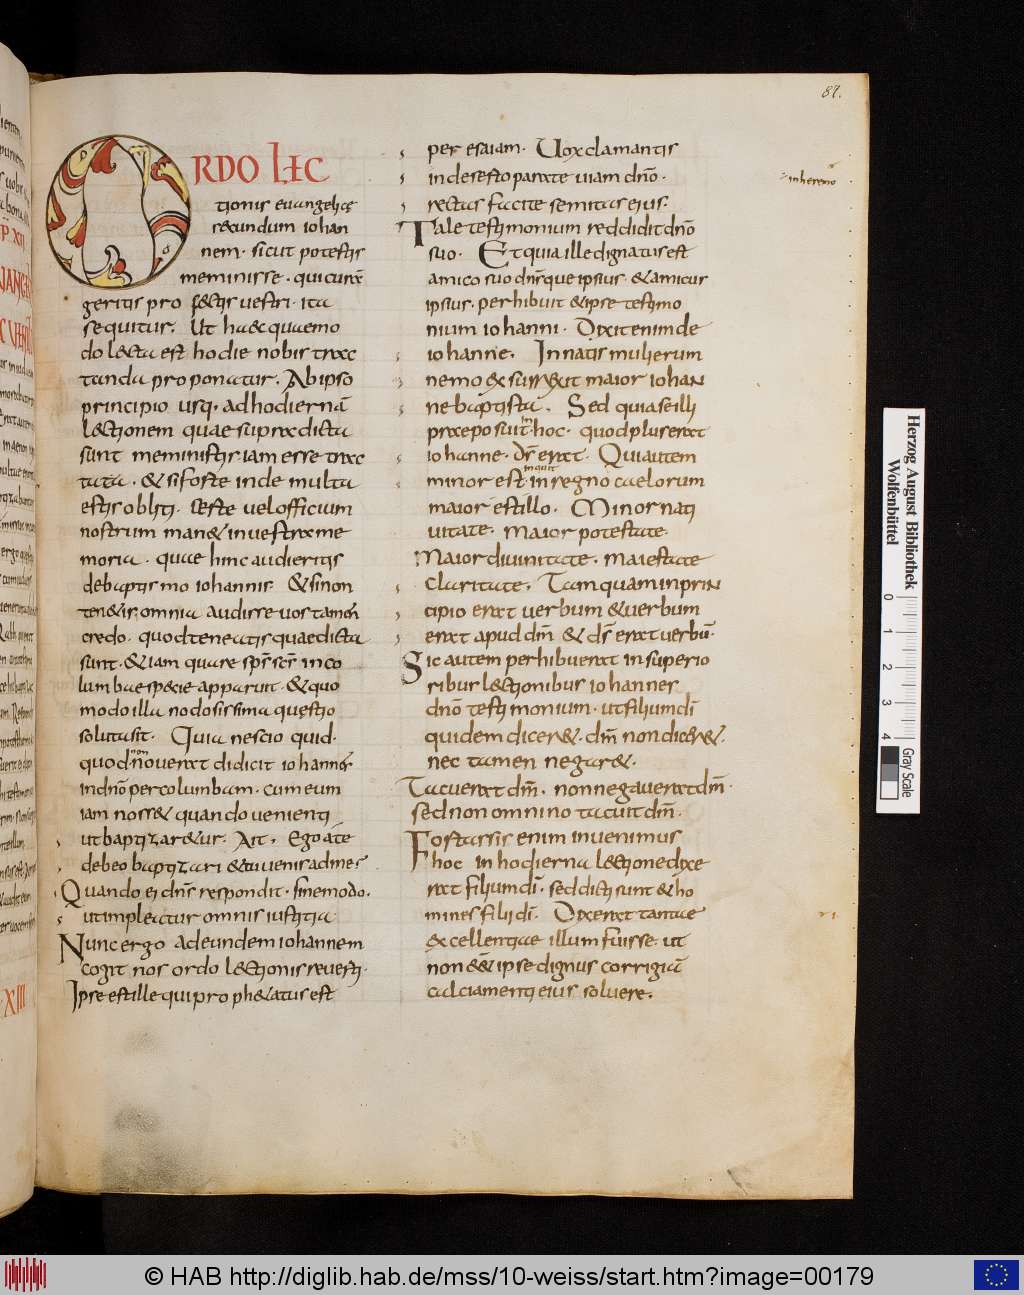 87.
ORDO LEC
tionis euangelicę
secundum iohan
nem · sicut potestis
meminisse · qui curam
geritis pro fectus uestri · ita
sequitur. Ut haec quaemo
do lecta est hodie nobis trac
tanda proponatur. Ab ipso
principio usq. ad hodiernā
lectionem quae supra dicta
sunt meministis iam esse trac
tata · & si forte inde multa
estis obliti · certe uel officium
nostrum manet in uestra me
moria · Quae hinc audieritis
de baptismo iohannis · Et si non
tenetis omnia audisse uos tamen
credo · quod teneatis quae dicta
sunt · & iam quare sps scs in co
lumbae specie apparuit · & quo
modo illa nodosissima questio
soluta sit · Quia nescio quid ·
quod non nouerat didicit iohannes
in dno per columbam · cum eum
iam nosset quando uenienti
ut baptizaretur · Ait. Ego ate
debeo baptizari & tu uenis ad me?
Quando ei dns respondit · sine modo ·
ut impleatur omnis iustitia
Nunc ergo ad eundem iohannem
cogit nos ordo lectionis reuerti ·
Ipse est ille qui prophetatus est
per esaiam · Uox clamantis
in deserto parate uiam dno ·
rectas facite semitas eius ·
in heremo
Tale testimonium reddidit dno
suo · Et quia ille dignatus est
amico suo dns que ipsius · & amicus
ipsius · perhibuit & ipse testimo
nium iohanni · Dixit enim de
iohanne. In natis mulierum
nemo exsurrexit maior iohan
ne baptista. Sed quia se illi
praeposuit hoc · quod plus erat
iohanne · ds erat · Qui autem
inquit
minor est · in regno caelorum
maior est illo. Minor nati
uitate · Maior potestate ·
Maior diuinitate · maiestate
claritate. Tamquam in prin
cipio erat uerbum & uerbum
erat apud dm & ds erat uerbū ·
Sic autem perhibuerat in superio
ribus lectionibus iohannes
dno testimonium · ut filium di
quidem diceret · dm non diceret ·
nec tamen negaret ·
Tacuerat dm · non negauerat dm ·
sed non omnino tacuit dm ·
Fortassis enim inuenimus
hoc in hodierna lectione dixe
rat filium di · sed dicti sunt & ho
mines filii di · Dixerat tantae
excellentiae illum fuisse · ut
non esset ipse dignus corrigiā
calciamenti eius soluere.
XIII
Herzog August Bibliothek
Wolfenbüttel
0 1 2 3 4
Gray Scale
© HAB http://diglib.hab.de/mss/10-weiss/start.htm?image=00179